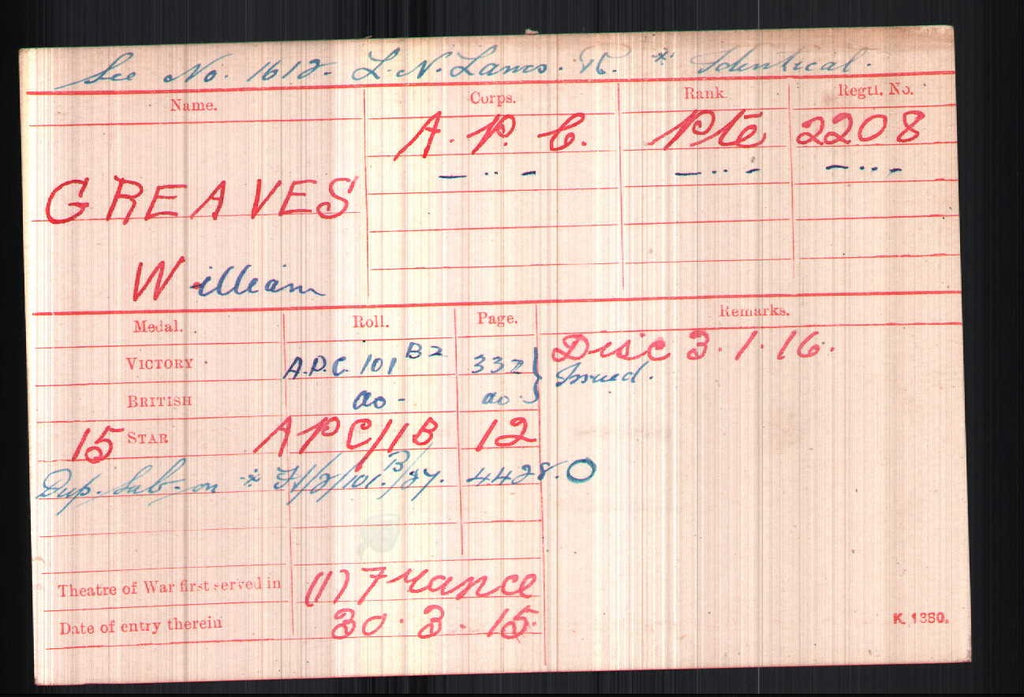 See No. 1612. L. N. Lancs. R. * Identical.
Name. Corps. Rank Regtl. No.
A. P. C. Pte 2208
— ·· — — ·· — — ·· —
GREAVES
William
Medal. Roll. Page. Remarks.
VICTORY A.P.C. 101 B2 332 } Disc 3.1.16.
Issued.
BRITISH do - do -
15 STAR APC/1B 12
Dup. Sub. on * H/2/101.B/27. 4428. O
Theatre of War first served in (1) France
Date of entry therein 30.3.15.
K. 1380.